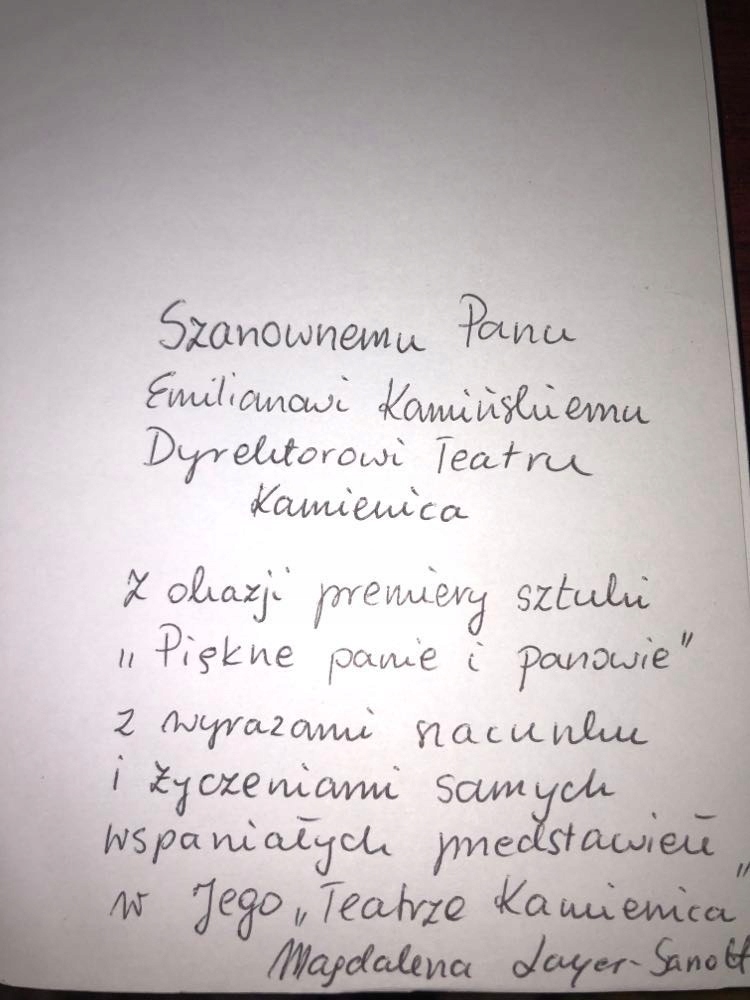 Szanownemu Panu
Emilianowi Kamińskiemu
Dyrektorowi Teatru
Kamienica
Z okazji premiery sztuki
„Piękne panie i panowie”
z wyrazami szacunku
i życzeniami samych
wspaniałych przedstawień
w Jego „Teatrze Kamienica”
Magdalena